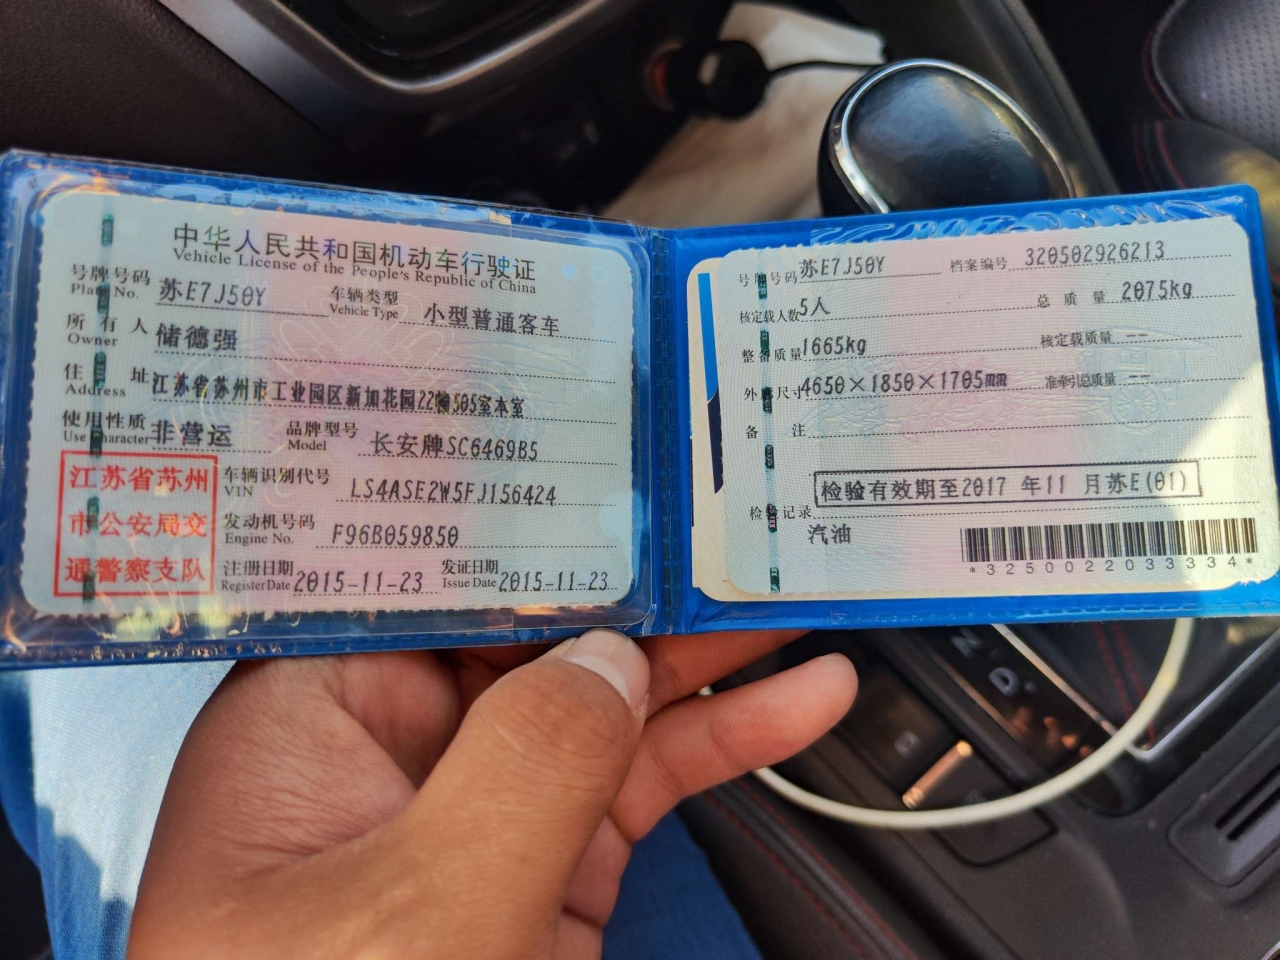 中华人民共和国机动车行驶证
Vehicle License of the People's Republic of China
号牌号码 苏E7J50Y 车辆类型 小型普通客车
Plate No. Vehicle Type
所有人 储德强
Owner
住址 江苏省苏州市工业园区新加花园22幢505室本室
Address
使用性质 非营运 品牌型号 长安牌SC6469B5
Use Character Model
江苏省苏州
市公安局交
通警察支队
车辆识别代号 LS4ASE2W5FJ156424
VIN
发动机号码 F96B059850
Engine No.
注册日期 2015-11-23 发证日期 2015-11-23
Register Date Issue Date
号牌号码 苏E7J50Y 档案编号 320502926213
核定载人数 5人 总质量 2075kg
整备质量 1665kg 核定载质量 --
外廓尺寸 4650×1850×1705mm 准牵引总质量 --
备注
检验有效期至2017 年11 月苏E(01)
检验记录
汽油
*3250022033334*
N
D